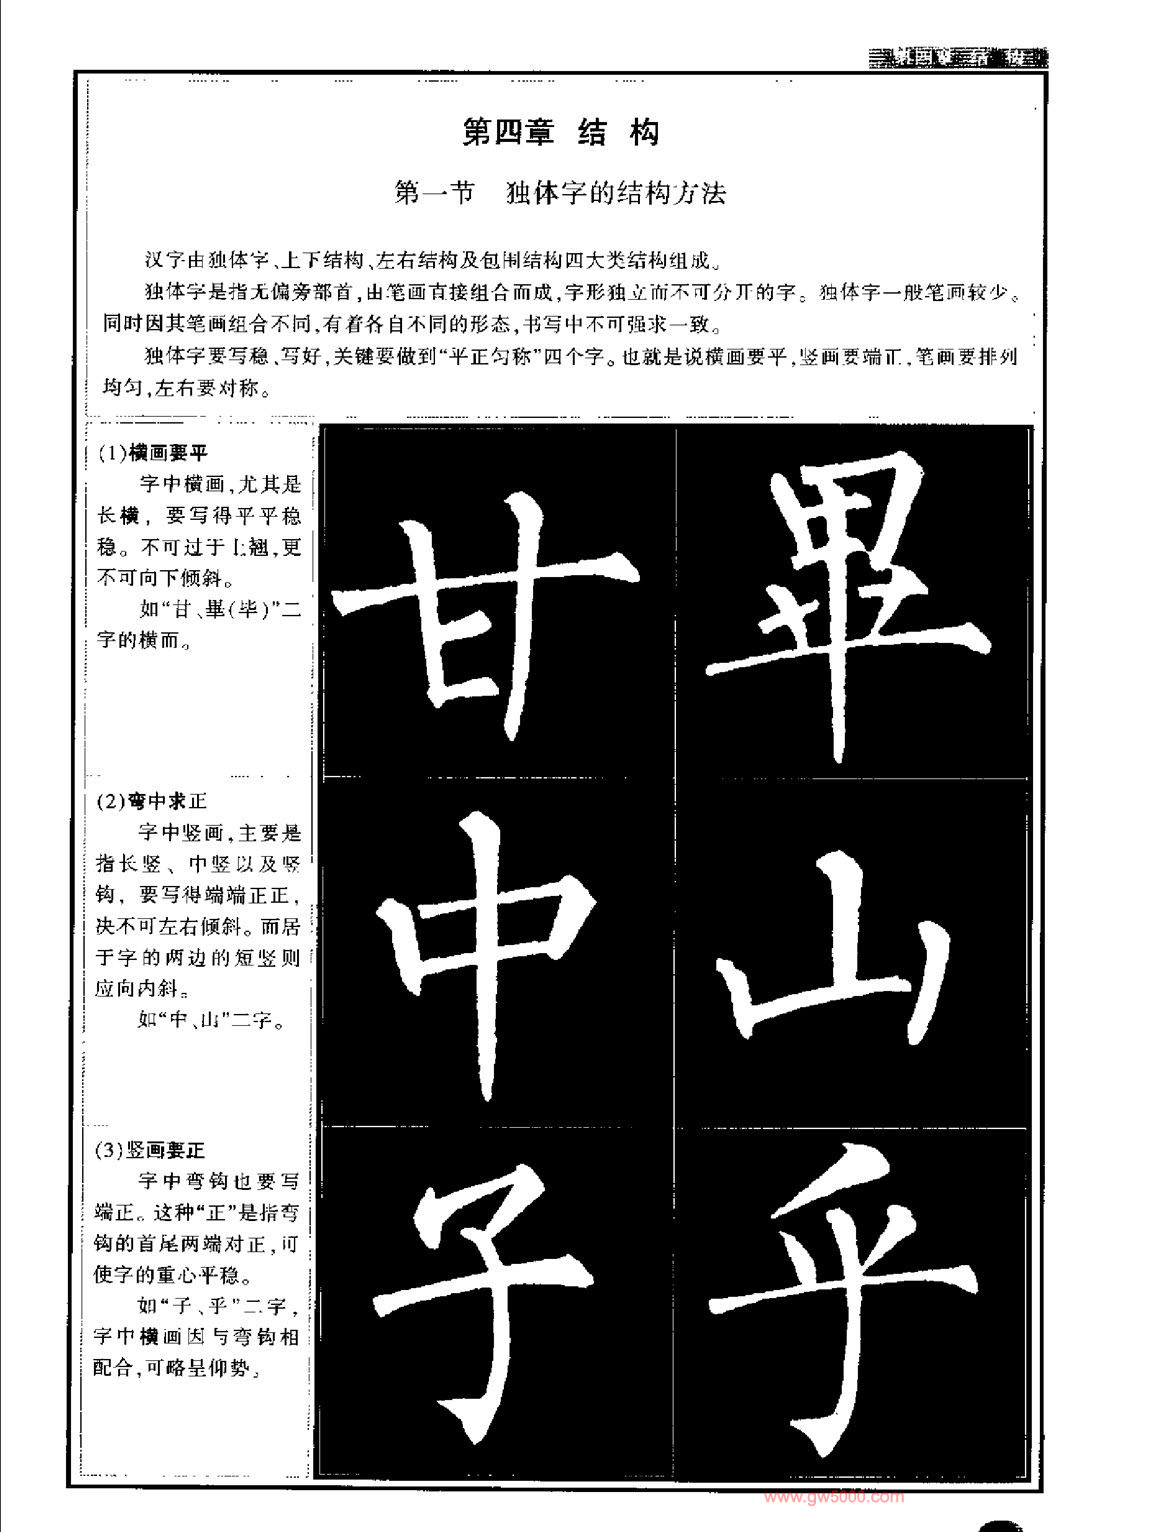 第四章 结 构
第四章 结 构
第一节 独体字的结构方法
汉字由独体字、上下结构、左右结构及包围结构四大类结构组成。
独体字是指无偏旁部首,由笔画直接组合而成,字形独立而不可分开的字。独体字一般笔画较少。
同时因其笔画组合不同,有着各自不同的形态,书写中不可强求一致。
独体字要写稳、写好,关键要做到“平正匀称”四个字。也就是说横画要平,竖画要端正,笔画要排列
均匀,左右要对称。
(1)横画要平
字中横画,尤其是
长横，要写得平平稳
稳。不可过于上翘,更
不可向下倾斜。
如“甘、畢(毕)”二
字的横画。
甘 畢
(2)弯中求正
字中竖画,主要是
指长竖、中竖以及竖
钩，要写得端端正正,
决不可左右倾斜。而居
于字的两边的短竖则
应向内斜。
如“中、山”二字。
中 山
(3)竖画要正
字中弯钩也要写
端正。这种“正”是指弯
钩的首尾两端对正,可
使字的重心平稳。
如“子、乎”二字,
字中横画因与弯钩相
配合,可略呈仰势。
子 乎
www.gw5000.com